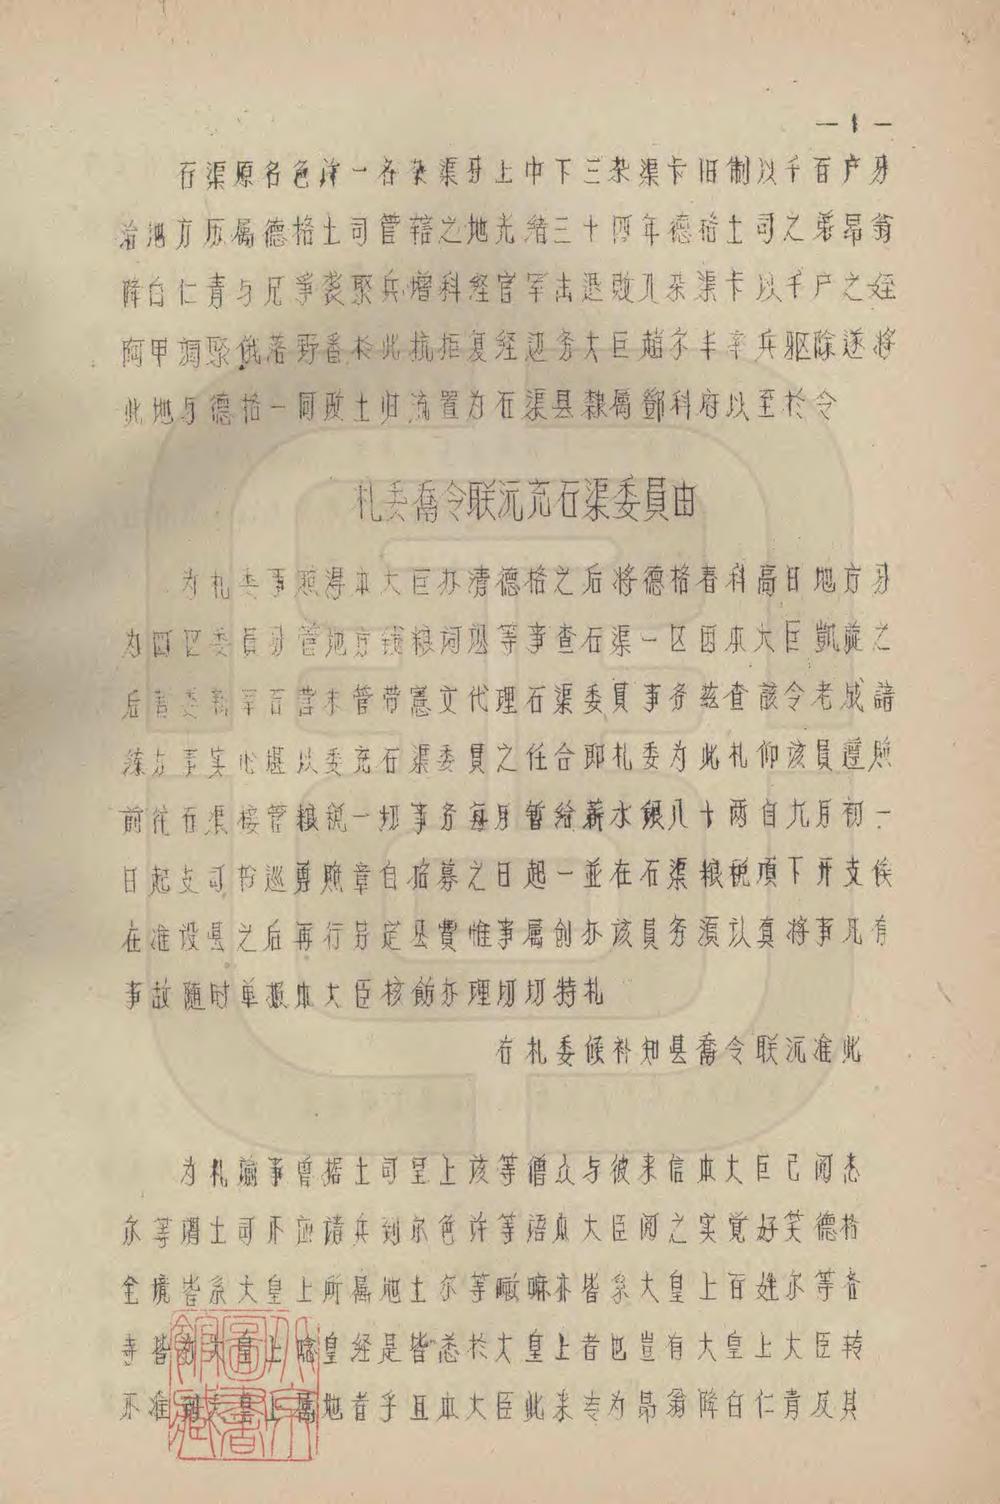 —1—
石渠原名色许一名杂渠分上中下三杂渠卡旧制以千百户分
治地方历属德格土司管辖之地光绪三十四年德格土司之弟昂翁
降白仁青与兄争袭聚兵增科经官军击退败入杂渠卡以千户之姪
阿甲调聚俄落野番扵此抗拒复经边务大臣趙尔丰率兵驱除遂将
此地与德格一同改土归流置为石渠县隸属鄧科府以至扵今
札委喬令联沅充石渠委員由
为札委事照得本大臣办清德格之后将德格春科高日地方分
为四区委員分管地方钱粮词讼等事查石渠一区因本大臣凱旋之
后曾委新军百营未管带憲文代理石渠委員事务兹查該令老成諳
练办事实心堪以委充石渠委員之任合即札委为此札仰该員遵照
前往石渠接管粮税一切事务每月暂给薪水银八十两自九月初一
日起支司书巡勇照章自招募之日起一並在石渠粮税項下开支俟
在准设县之后再行另定县費惟事属创办该員务须认真将事凡有
事故随时单报本大臣核飭办理切切特札
右札委候补知县喬令联沅准此
为札谕事曾据土司呈上该等僧众与彼来信本大臣己阅悉
尔等谓土司不应请兵到尔色许等语本大臣阅之实觉好笑德格
全境皆系大皇上所属地土尔等喇嘛亦皆系大皇上百姓尔等各
寺皆为大皇上唸皇经是皆悉扵大皇上者也豈有大皇上大臣转
不准到大皇上属地者乎且本大臣此来专为昂翁降白仁青及其
北京圖書館藏